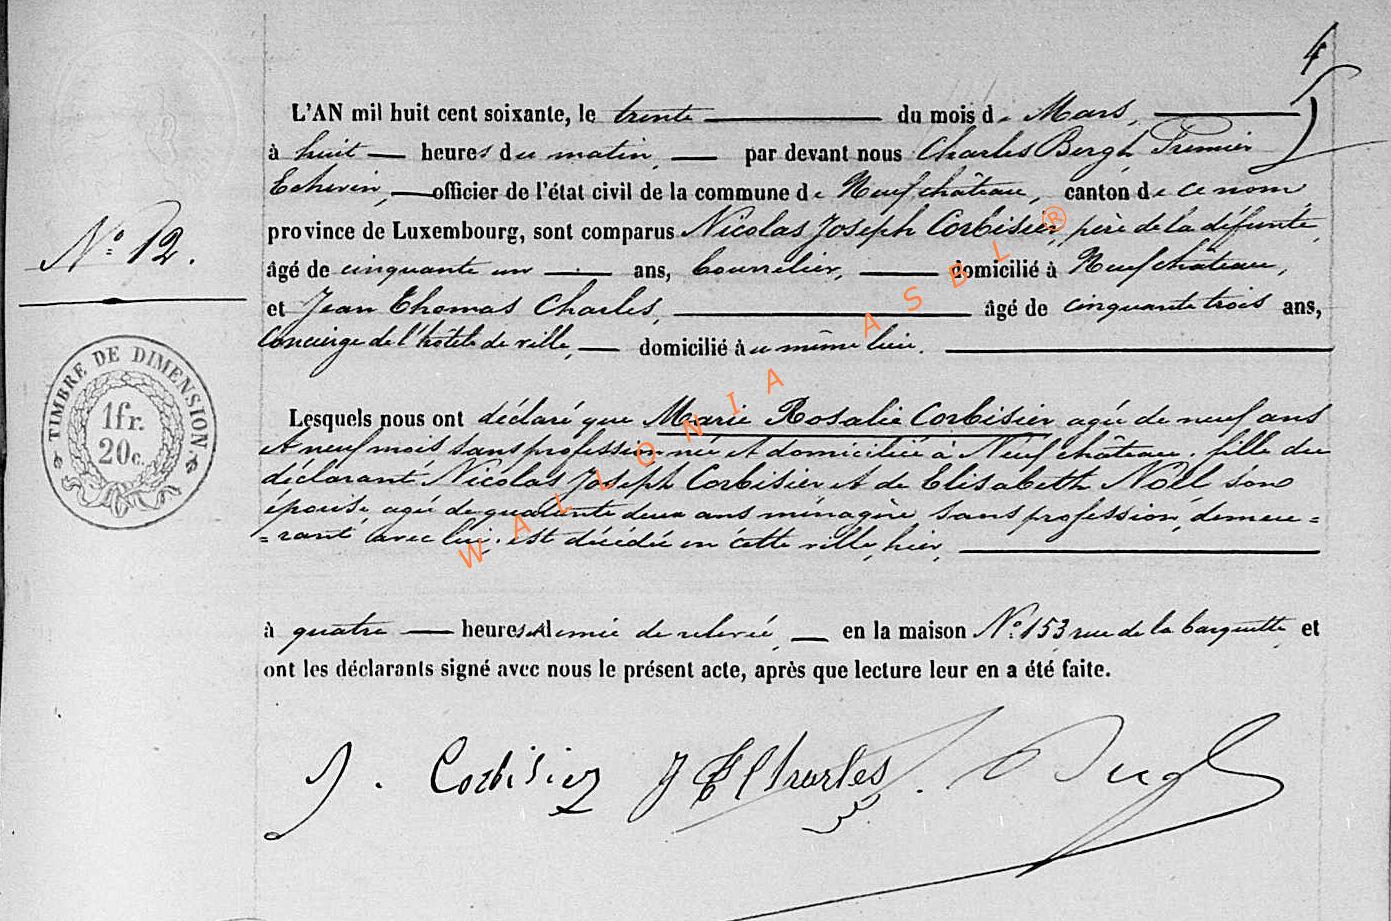 4
L'AN mil huit cent soixante, le trente du mois de Mars,
à huit heures du matin, par devant nous Charles Bergh Premier
Echevin, officier de l'état civil de la commune de Neufchâteau, canton de ce nom,
province de Luxembourg, sont comparus Nicolas Joseph Corbisier, père de la défunte,
N° 12.
âgé de cinquante un ans, bourrelier, domicilié à Neufchâteau,
et Jean Thomas Charles, âgé de cinquante trois ans,
Concierge de l'hôtel de ville, domicilié au même lieu.
TIMBRE DE DIMENSION
1fr.
20c.
Lesquels nous ont déclaré que Marie Rosalie Corbisier agée de neuf ans
et neuf mois sans profession née et domiciliée à Neufchâteau, fille du
déclarant Nicolas Joseph Corbisier et de Elisabeth Noël son
épouse agée de quarante deux ans ménagère sans profession, demeu=
=rant avec lui, est décédée en cette ville, hier,
à quatre heures et demie de relevée, en la maison N° 153, rue de la barquette et
ont les déclarants signé avec nous le présent acte, après que lecture leur en a été faite.
J. Corbisier JTCharles Bergh
WALLONIA ASBL ®